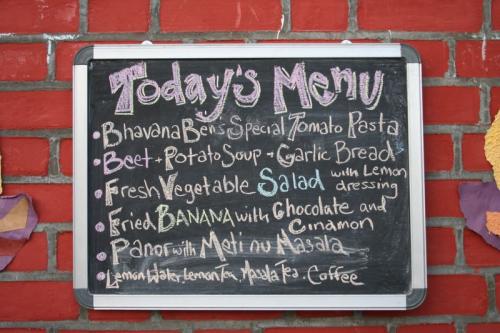 Today's Menu
BhavanaBen's Special Tomato Pasta
Beet + Potato Soup + Garlic Bread
Fresh Vegetable Salad with Lemon dressing
Fried BANANA with Chocolate and
Cinamon
Panor with Metinu Masala
Lemon Water Lemon Tea, Masala Tea, Coffee